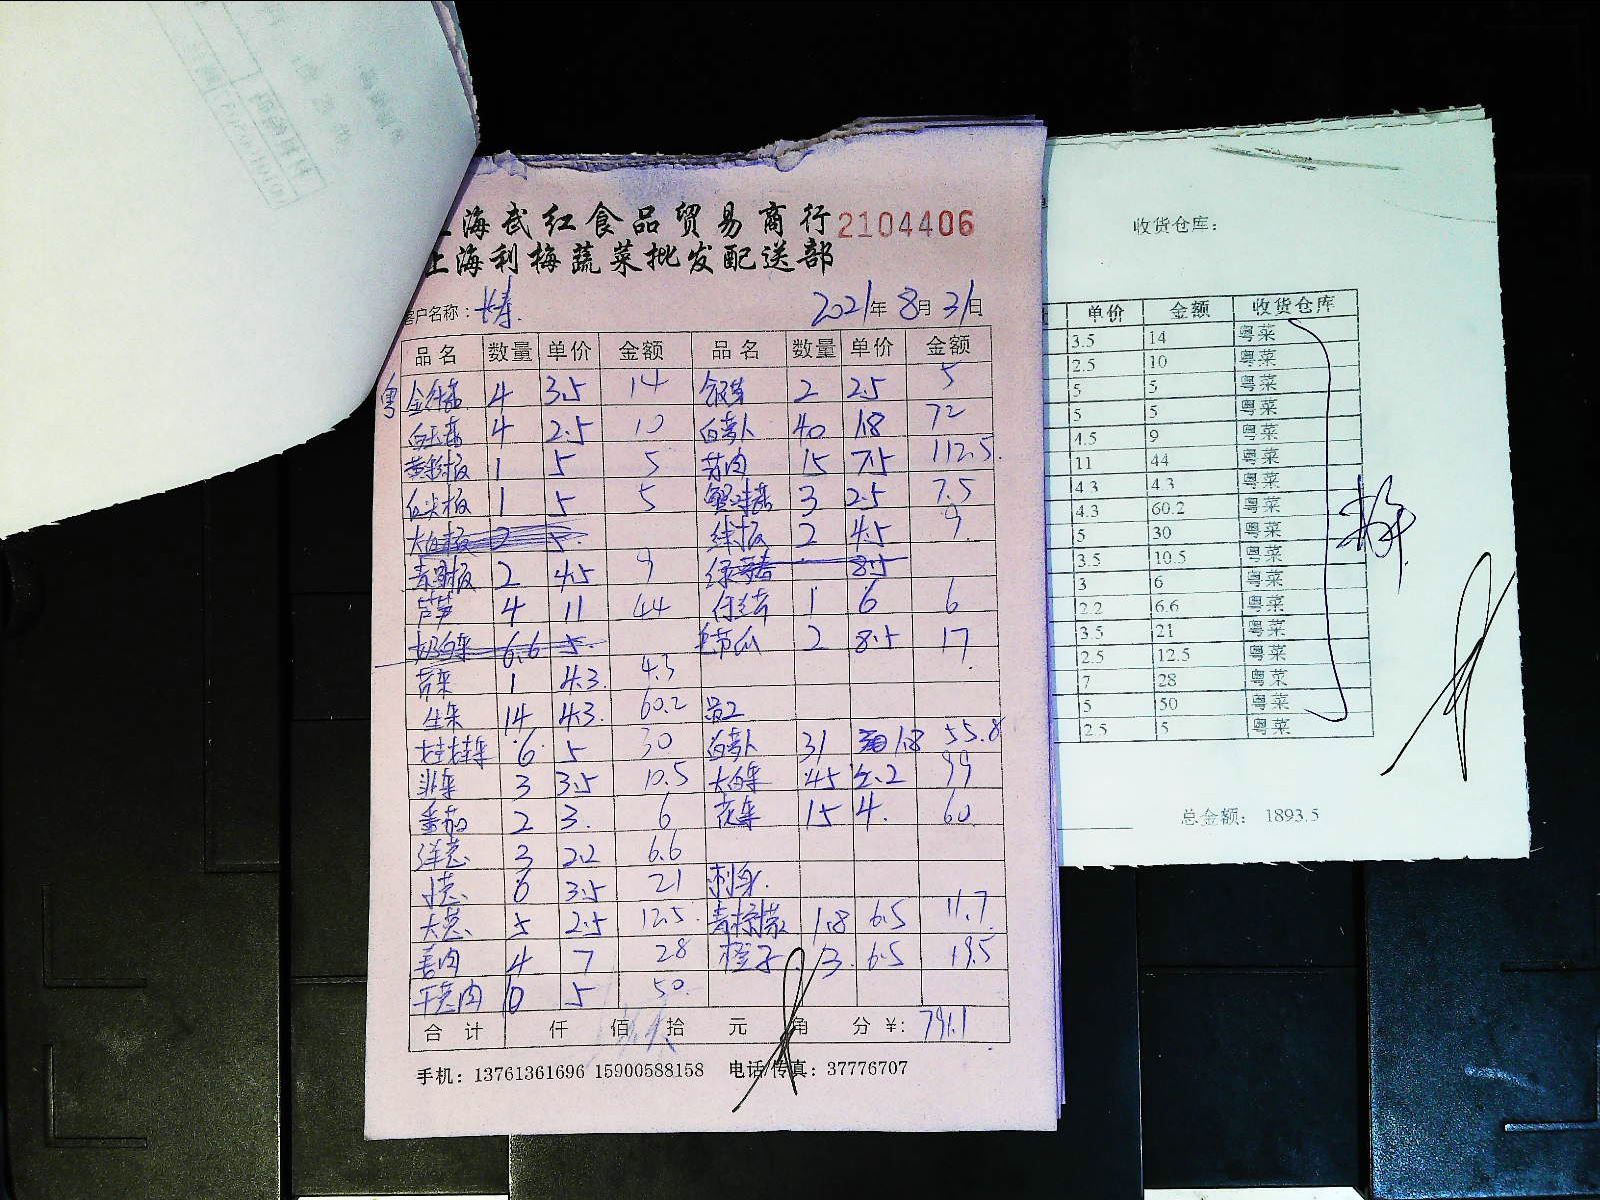 上海武红食品贸易商行 2104406
上海利梅蔬菜批发配送部
客户名称： 2021年 8月 31日
品名 数量 单价 金额 品名 数量 单价 金额
粤 4 3.5 14 2 2.5 5
4 2.5 10 白萝卜 40 1.8 72
1 5 5 15 7.5 112.5
1 5 5 3 2.5 7.5
2 5 2 4.5 9
2 4.5 9 8.5
芦笋 4 11 44 1 6 6
奶白菜 6.6 5 毛节瓜 2 8.5 17
1 4.3 4.3
生菜 14 4.3 60.2 员工
6 5 30 白萝卜 31 1.8 55.8
韭菜 3 3.5 10.5 大白菜 45 2.2 99
番茄 2 3 6 花菜 15 4 60
洋葱 3 2.2 6.6
6 3.5 21 刺身
大葱 5 2.5 12.5 青柠檬 1.8 6.5 11.7
姜肉 4 7 28 橙子 3 6.5 19.5
干葱肉 10 5 50
合计 仟 佰 拾 元 角 分 ¥: 791.1
手机：13761361696 15900588158 电话/传真：37776707
收货仓库：
单价 金额 收货仓库
3.5 14 粤菜
2.5 10 粤菜
5 5 粤菜
5 5 粤菜
4.5 9 粤菜
11 44 粤菜
4.3 4.3 粤菜
4.3 60.2 粤菜
5 30 粤菜
3.5 10.5 粤菜
3 6 粤菜
2.2 6.6 粤菜
3.5 21 粤菜
2.5 12.5 粤菜
7 28 粤菜
5 50 粤菜
2.5 5 粤菜
总金额： 1893.5